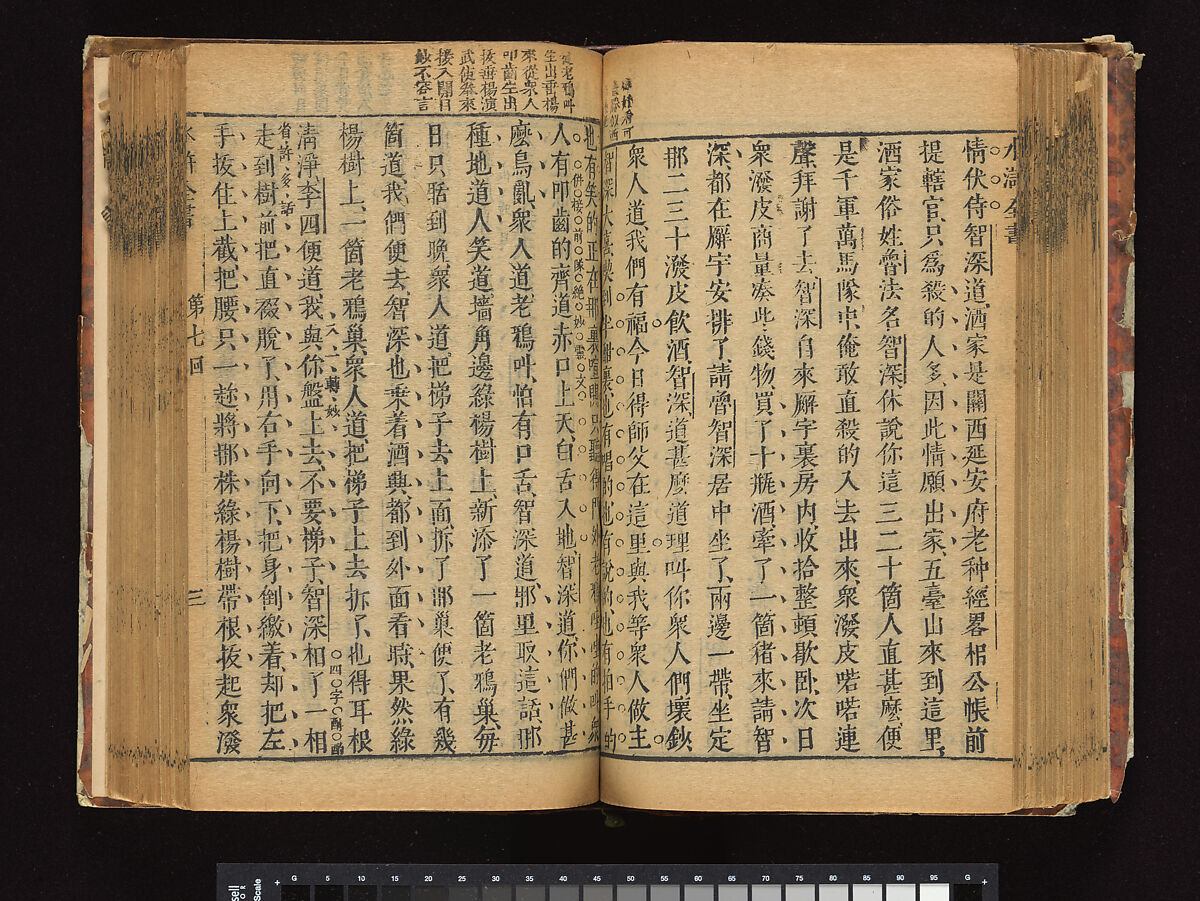 水滸全書
情伏侍智深道洒家是關西延安府老种經畧相公帳前
提轄官只爲殺的人多因此情願出家五臺山來到這里
洒家俗姓魯法名智深休說你這三二十箇人直甚麽便
是千軍萬馬隊中俺敢直殺的入去出來衆潑皮喏喏連
聲拜謝了去智深自來廨宇裏房内收拾整頓歇卧次日
衆潑皮商量凑些錢物買了十瓶酒牽了一箇猪來請智
深都在廨宇安排了請魯智深居中坐了兩邊一帶坐定
那二三十潑皮飲酒智深道甚麽道理叫你衆人們壞鈔
衆人道我們有福今日得師父在這里與我等衆人做主
智深大喜喫到半酣裏也有唱的也有說的也有拍手的
也有笑的正在那裏喧鬨只聽得門外老鴉哇哇的叫衆
人有叩齒的齊道赤口上天白舌入地智深道你們做甚
併接前隊絶妙靈文
麽鳥亂衆人道老鴉叫怕有口舌智深道那里取這話那
種地道人笑道墻角邊綠楊樹上新添了一箇老鴉巢每
日只聒到晩衆人道把梯子去上面拆了那巢便了有幾
箇道我們便去智深也乗着酒興都到外面看時果然綠
楊樹上一箇老鴉巢衆人道把梯子上去拆了也得耳根
清淨李四便道我與你盤上去不要梯子智深相了一相
又一轉妙
省許多話
走到樹前把直裰脫了用右手向下把身倒繳着却把左
手扳住上截把腰只一趁將那株綠楊樹帶根拔起衆潑
老鴉叫
生出垂楊
來從衆人
叩齒生出
拔垂楊演
武使拳來
接入閒日
鈔不容言
水滸全書
第七回
三